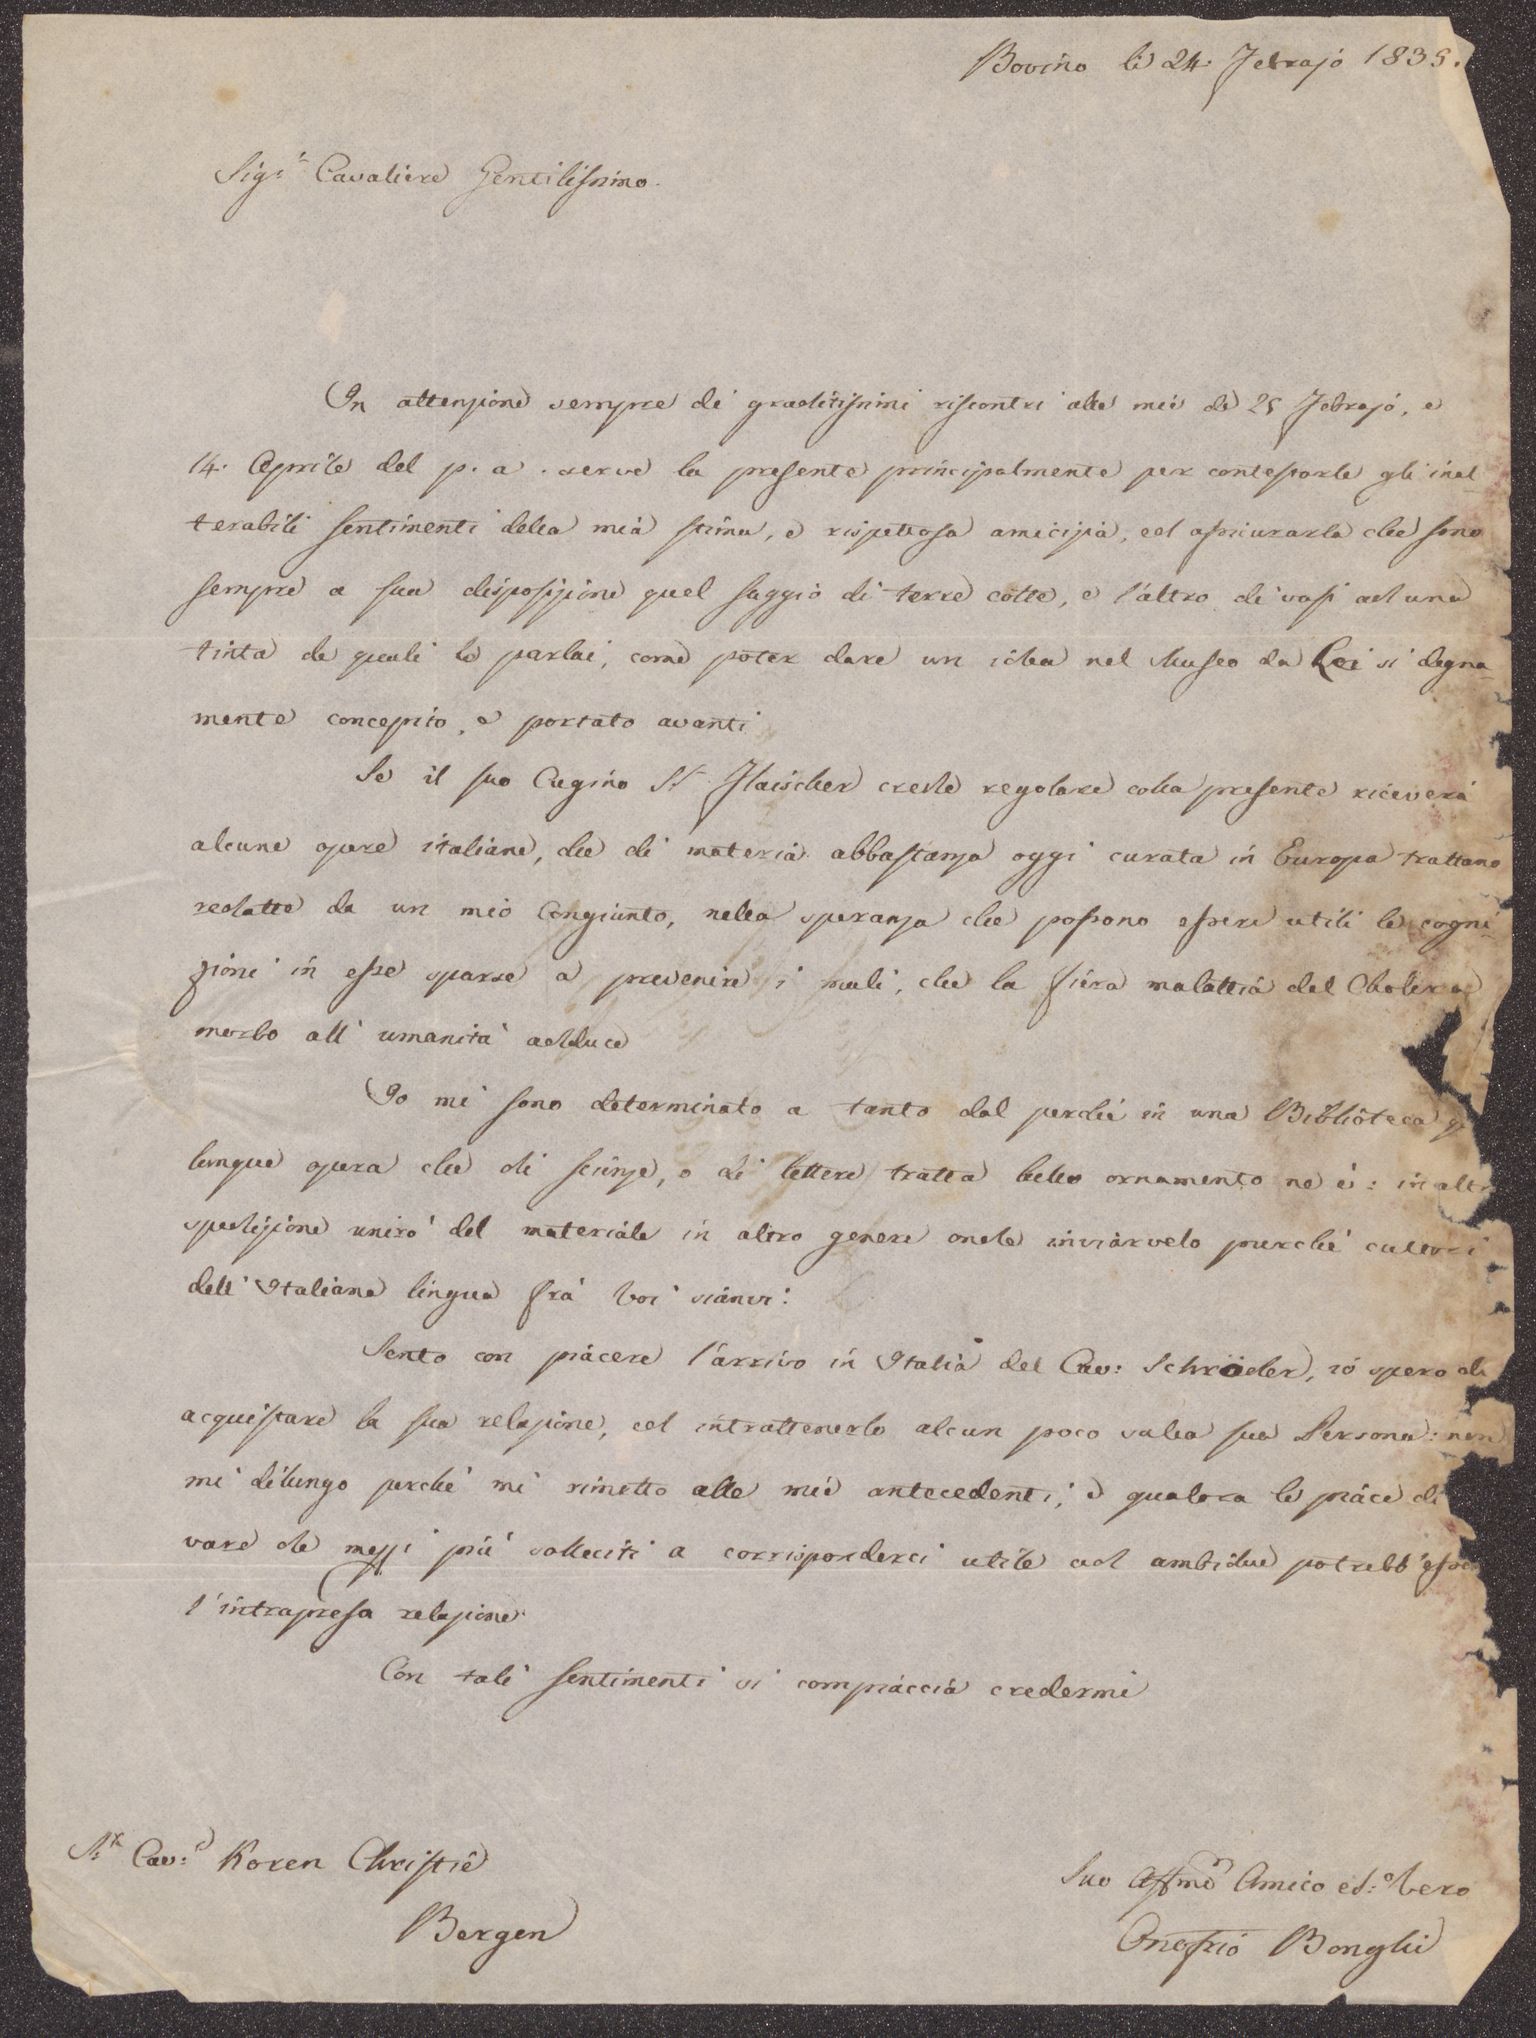 Bovino li 24. Febrajo 1835.
Sig.r Cavaliere Gentilissimo.
In attenzione sempre di graditissimi riscontri alle mie de 25 Febrajo, e
14. Aprile del p. a. serve la presente principalmente per contestarle gli inal-
terabili sentimenti della mia stima, e rispettosa amicizia, ed assicurarla che sono
sempre a sua disposizione quel saggio di terre cotte, e l'altro di vasi ad una
tinta de quali le parlai, come poter dare un idea nel Museo da Lei si degna-
mente concepito, e portato avanti
Se il suo Cugino Sr. Flaischer crede regolare colla presente riceverà
alcune opere italiane, che di materia abbastanza oggi curata in Europa trattano
redatte da un mio Congiunto, nella speranza che possono essere utili le cogni-
zioni in esse sparse a prevenire i mali, che la fiera malattia del Cholera
morbo all' umanità adduce
Io mi sono determinato a tanto dal perchè in una Biblioteca
lunque opera che di scienze, o di lettere tratta bello ornamento ne è: in altr
spedizione unirò del materiale in altro genere onde inviarvelo purchè cultori
dell' Italiana lingua frà Voi sianvi.
Sento con piacere l'arrivo in Italia del Cav: Schröder, io spero di
acquistare la sua relazione, ed intrattenerlo alcun poco sulla sua Persona: non
mi dilungo perchè mi rimetto alle mie antecedenti, e qualora le piace di
vare de mezzi più solleciti a corrisponderci utile ad ambidue potrebb'esse
l'intrapresa relazione.
Con tali sentimenti si compiaccia credermi
Sr. Cav:e Koren Christie
Bergen
Suo Affmo Amico ed:o Vero
Onofrio Bonghi